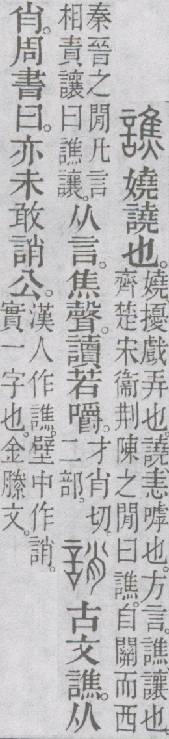 譙 嬈譊也。嬈擾戲弄也。譊恚嘑也。方言。譙讓也。齊楚宋衞荆陳之閒曰譙。自關而西
秦晉之閒凡言相責讓曰譙讓。从言。焦聲。讀若嚼。才肖切。二部。誚 古文譙。从
肖。周書曰。亦未敢誚公。漢人作譙。壁中作誚。實一字也。金縢文。